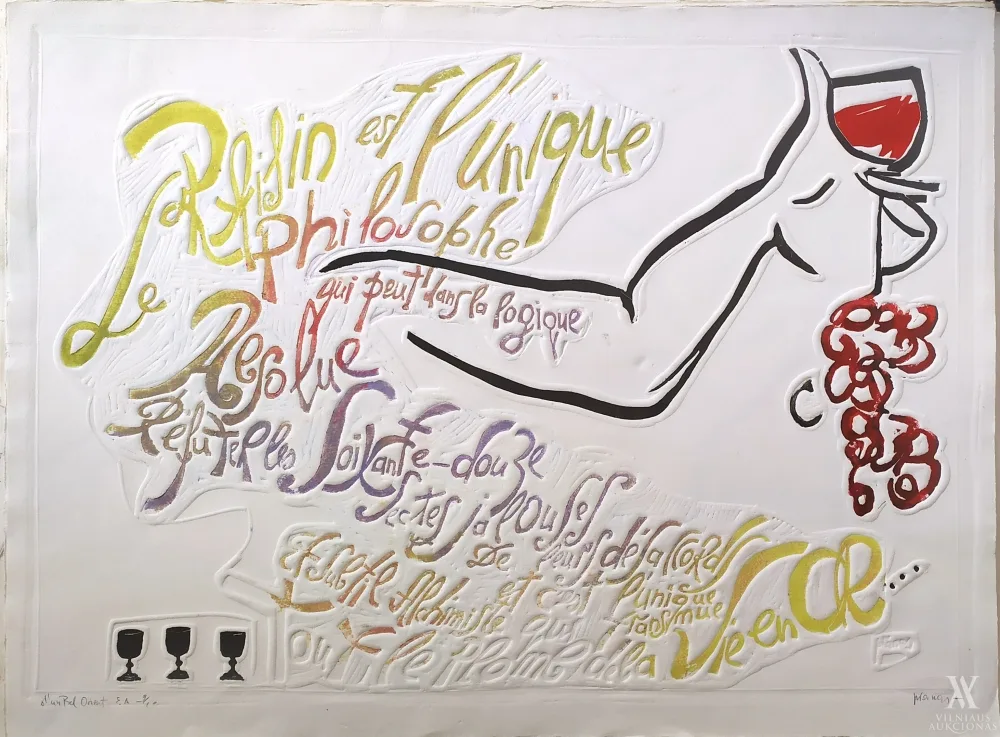 Le RAisin est l'unique
philosophe
qui peut dans la logique
Absolue
Réfuter les Soixante-douze
sectes jalouses
De leurs désaccords
Et subtil Alchimiste et c'est l'unique
qui Transmue
le Plomb de la Vie en OR...
d'un Bel Orient E.A
VILNIAUS
AUKCIONAS